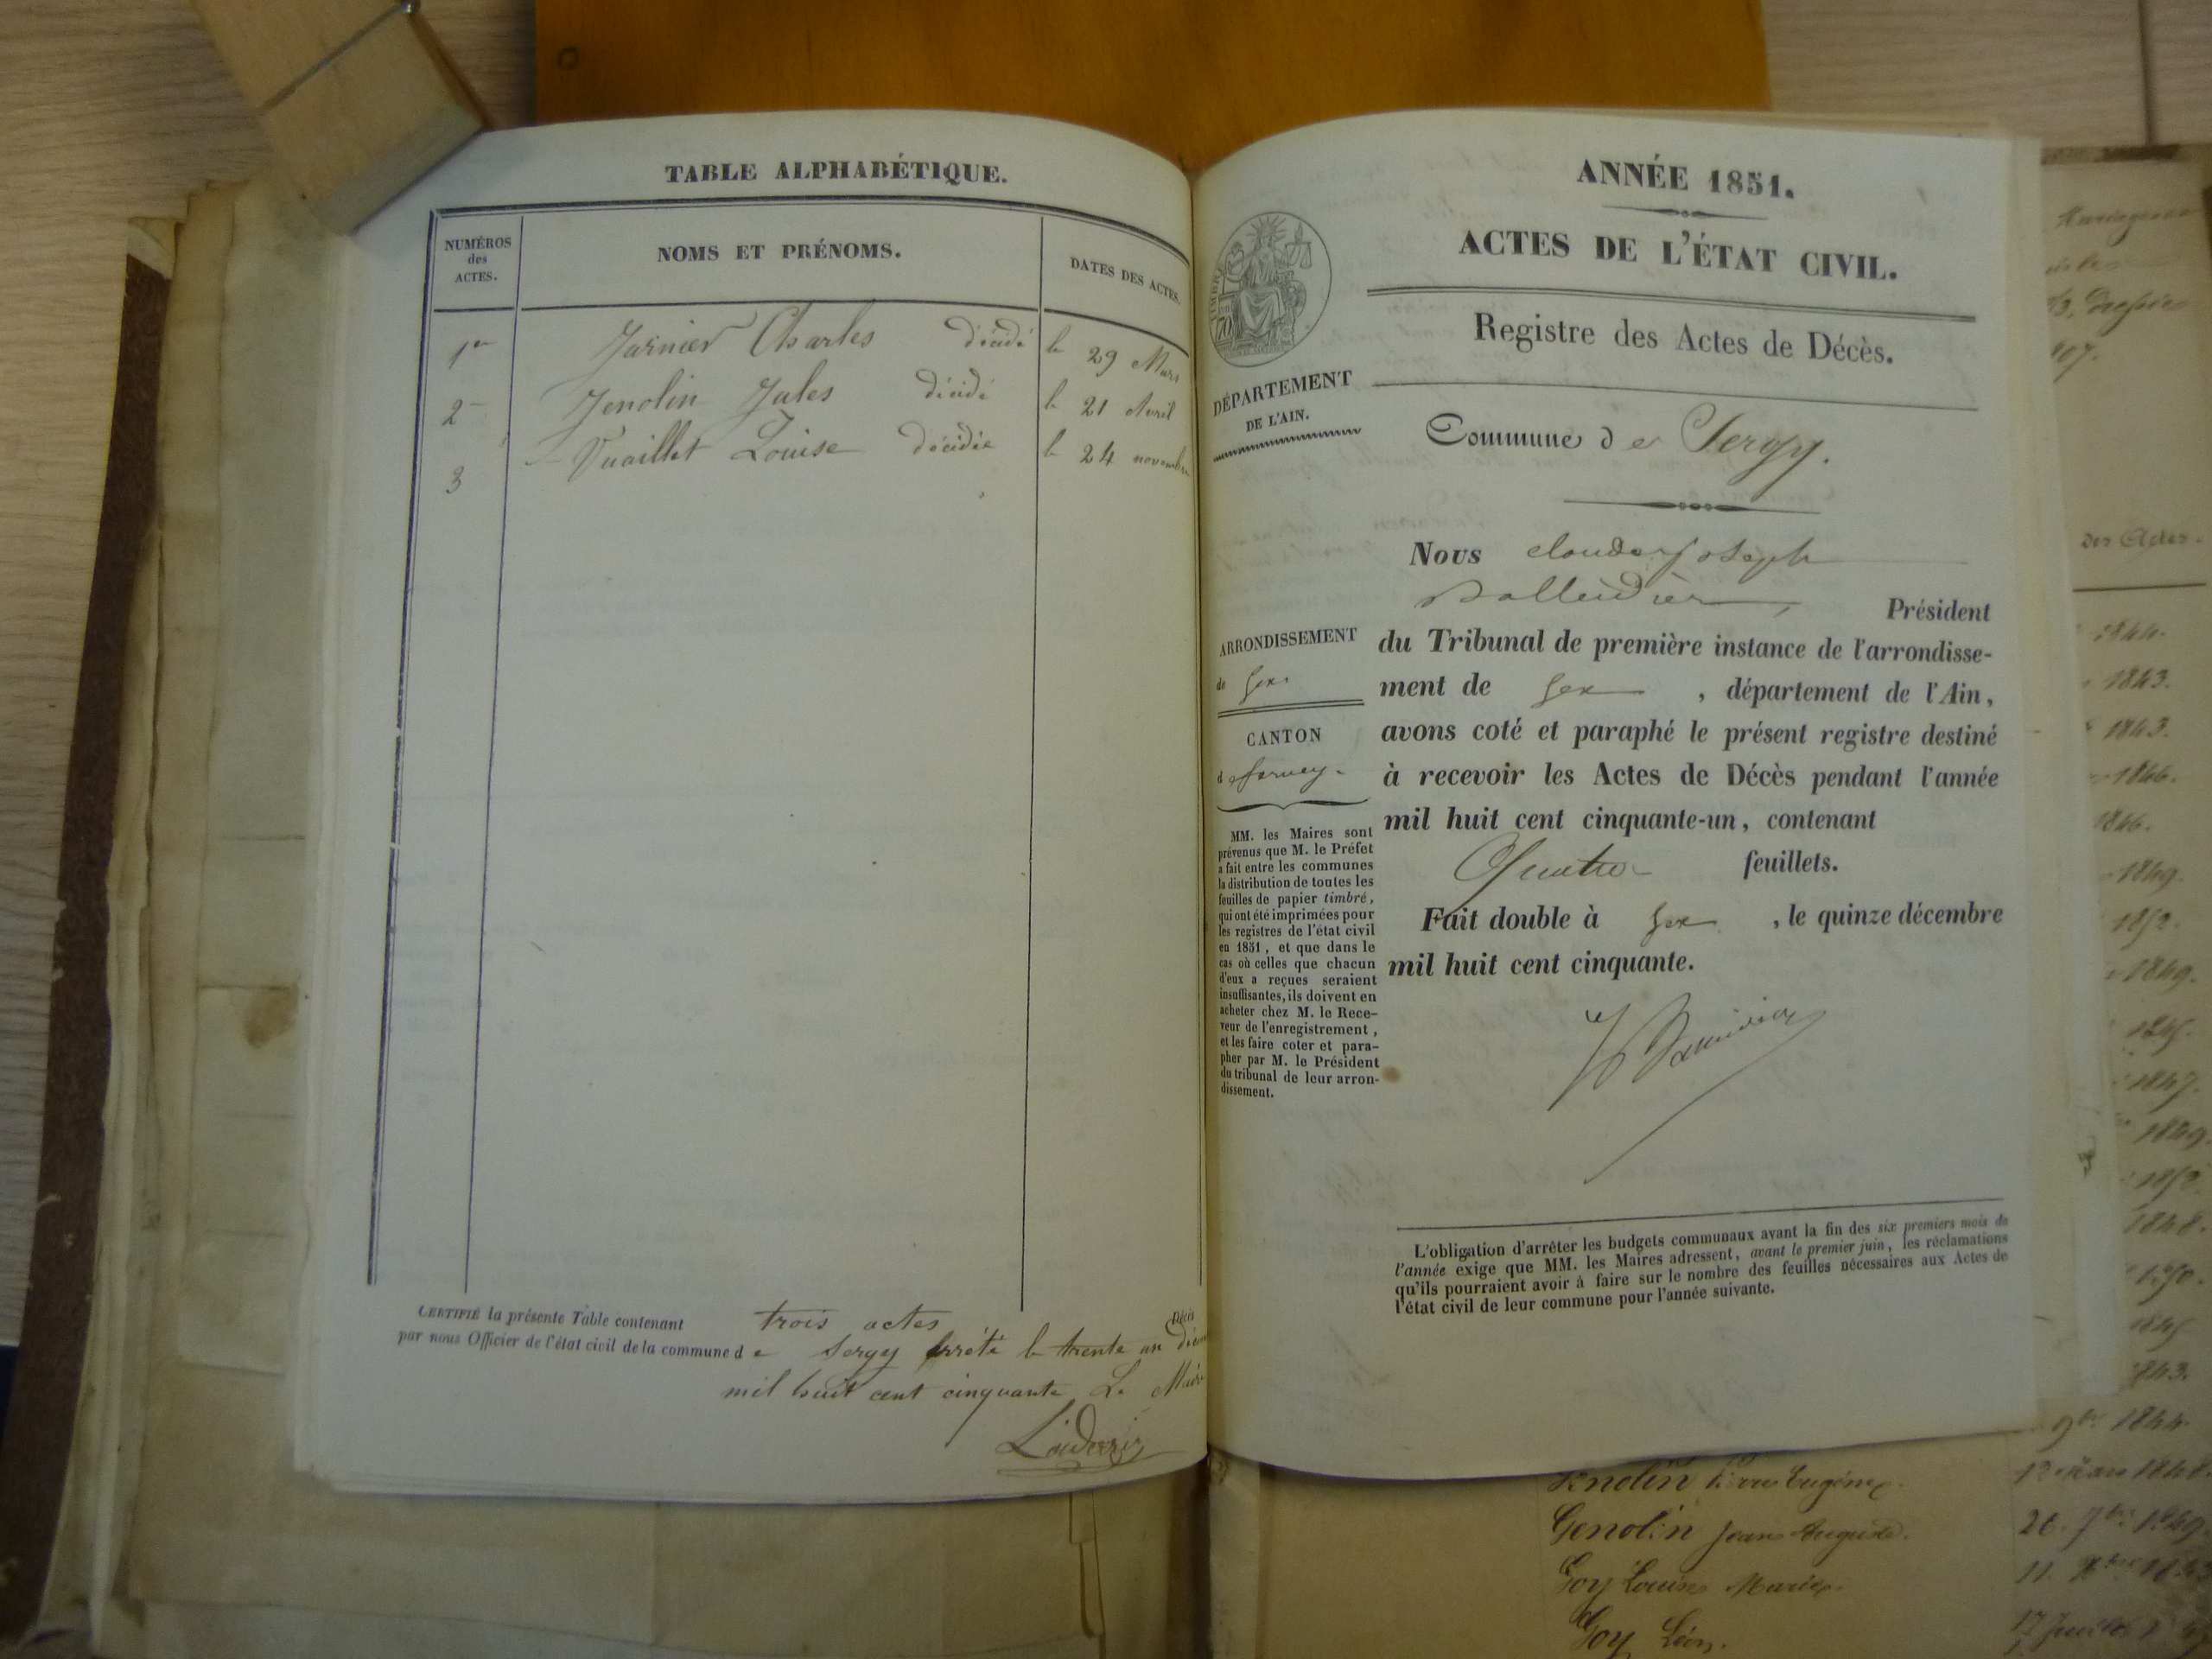 TABLE ALPHABÉTIQUE.
NUMÉROS
des
ACTES.
NOMS ET PRÉNOMS.
DATES DES ACTES.
1er Charles décédé le 29 Mars
2 Jenolin Jules décédé le 21 Avril
3 Vuaillet Louise décédée le 24 novembre
CERTIFIÉ la présente Table contenant trois actes
par nous Officier de l'état civil de la commune de Sergy arrêté le trente un
mil huit cent cinquante Le Maire
ANNÉE 1851.
ACTES DE L'ÉTAT CIVIL.
Registre des Actes de Décès.
DÉPARTEMENT
DE L'AIN.
Commune de Sergy.
Nous Claude Joseph
Président
du Tribunal de première instance de l'arrondisse-
ment de Gex , département de l'Ain,
avons coté et paraphé le présent registre destiné
à recevoir les Actes de Décès pendant l'année
mil huit cent cinquante-un, contenant
Quatre feuillets.
Fait double à Gex , le quinze décembre
mil huit cent cinquante.
ARRONDISSEMENT
de Gex
CANTON
de Ferney
MM. les Maires sont
prévenus que M. le Préfet
a fait entre les communes
la distribution de toutes les
feuilles de papier timbré,
qui ont été imprimées pour
les registres de l'état civil
en 1851, et que dans le
cas où celles que chacun
d'eux a reçues seraient
insuffisantes, ils doivent en
acheter chez M. le Rece-
veur de l'enregistrement,
et les faire coter et para-
pher par M. le Président
du tribunal de leur arron-
dissement.
L'obligation d'arrêter les budgets communaux avant la fin des six premiers mois de
l'année exige que MM. les Maires adressent, avant le premier juin, les réclamations
qu'ils pourraient avoir à faire sur le nombre des feuilles nécessaires aux Actes de
l'état civil de leur commune pour l'année suivante.
des Actes.
1844.
1843.
1843.
1846.
1846.
1849.
1852.
1849.
1847.
1849
1852.
1848.
1844.
1848.
Genolin Jean Auguste.
Goy Louise Marie.
Goy Léon.